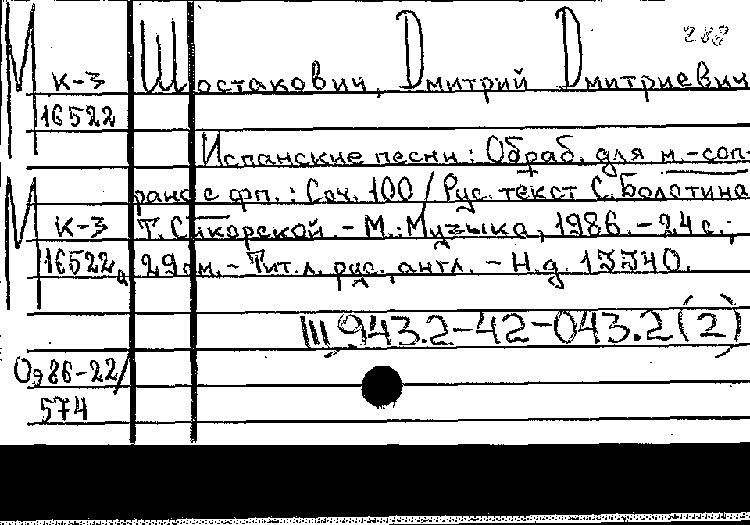 288
М К-3 Шостакович, Дмитрий Дмитриевич
16522
Испанские песни: Обраб. для м.-соп-
рано с фп.: Соч. 100 / Рус. текст С. Болотина
М К-3 Т. Сикорской. - М.: Музыка, 1986. - 24 с.;
16522а 29 см. - Тит. л. рус., англ. - Н.д. 13340.
III, 943.2-42-043.2(2)
Оэ86-22/
574